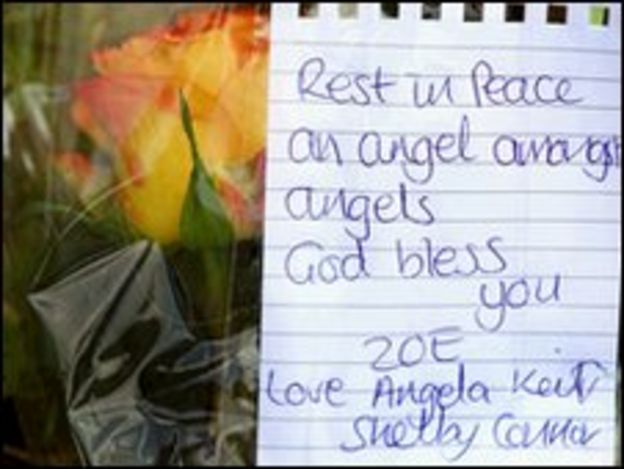 Rest in Peace
an angel amongst
angels
God bless
you
ZOE
Love Angela Keith
Shelby Connor